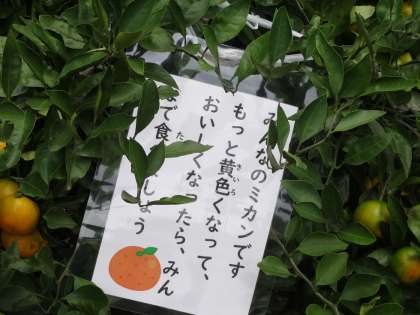 みんなのミカンです
もっと黄色くなって、
おいしくなったら、みん
なで食べましょう